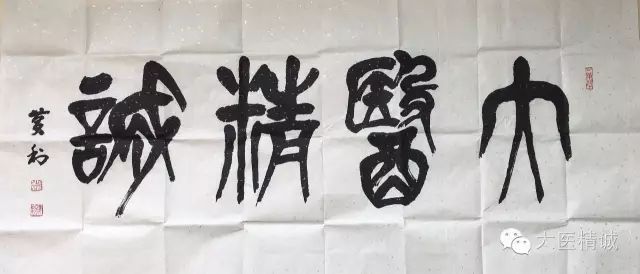 大醫精誠
大医精诚